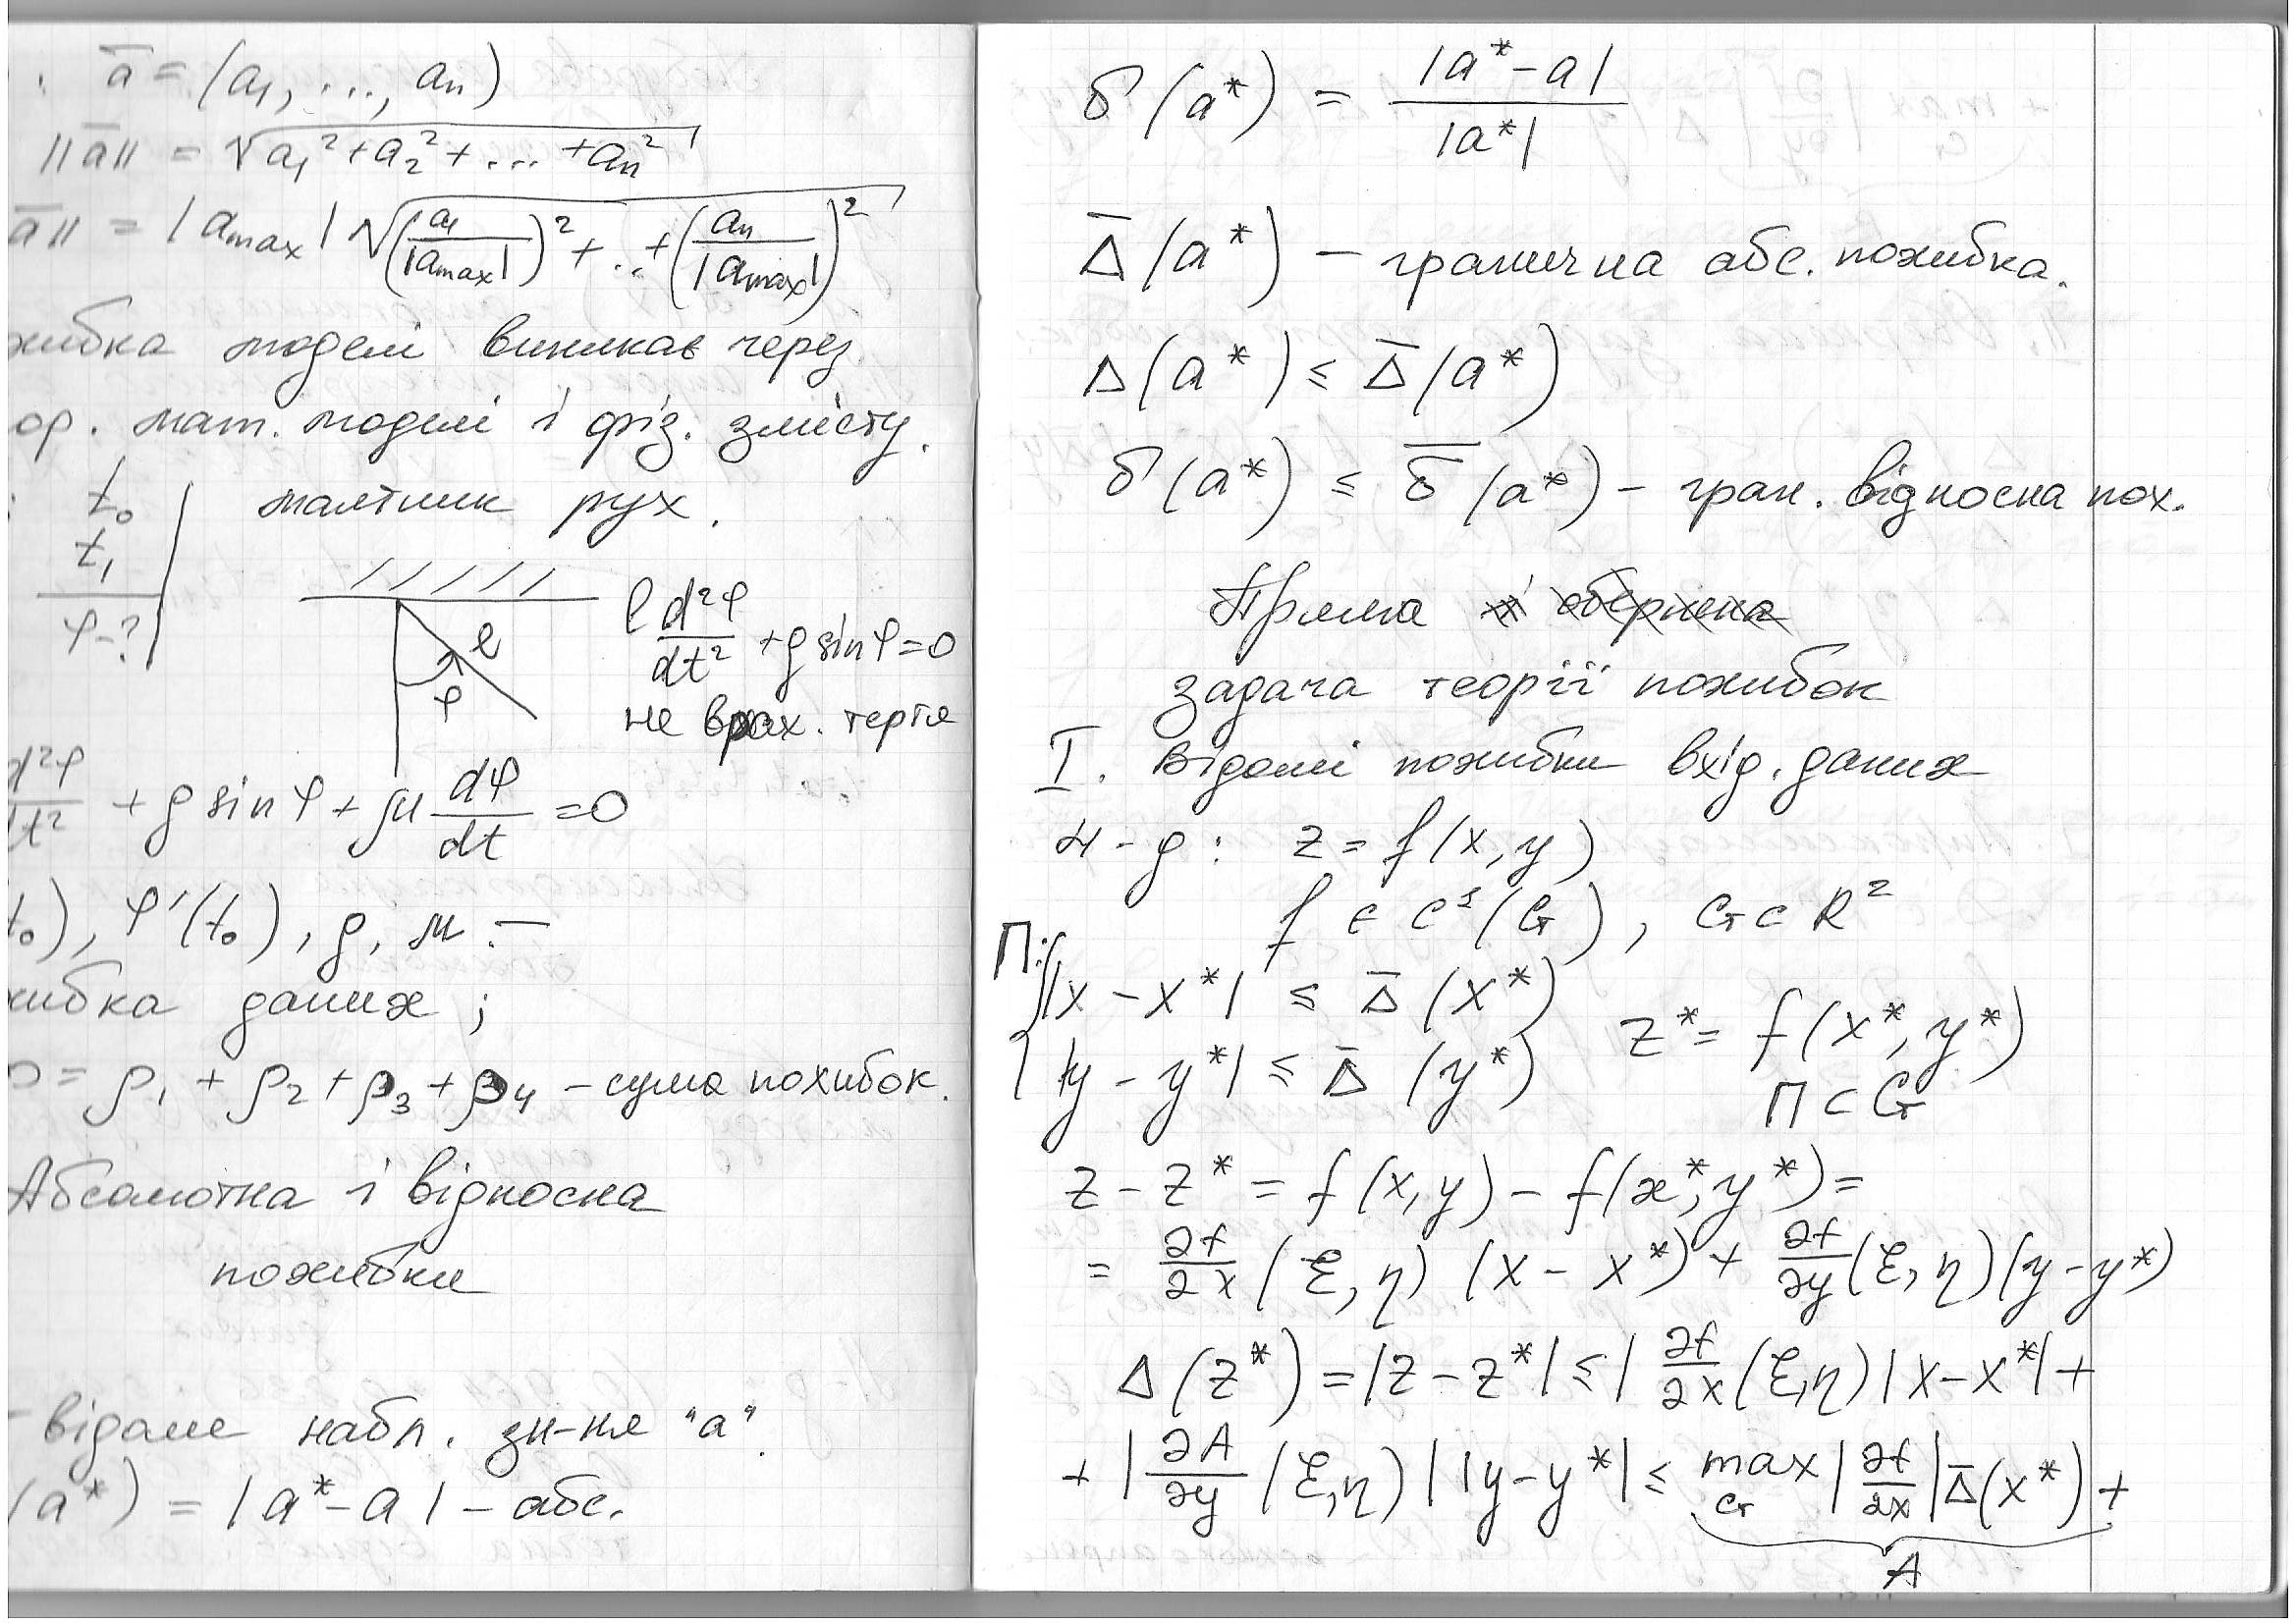 : a̅ = (a₁, ..., aₙ)
||a̅|| = √(a₁² + a₂² + ... + aₙ²)
a̅|| = |a_max| √((a₁/|a_max|)² + ... + (aₙ/|a_max|)²)
хибка моделі виникає через
ор. мат. моделі і фіз. змісту.
: t₀
t₁
φ-?
маятник рух.
l
φ
l d²φ/dt² + g sin φ = 0
не врах. тертя
d²φ/dt² + g sin φ + μ dφ/dt = 0
t₀), φ'(t₀), g, μ. —
хибка даних ;
ρ = ρ₁ + ρ₂ + ρ₃ + ρ₄ – сума похибок.
Абсолютна і відносна
похибки
– відоме набл. зн-ня "а".
(a*) = |a* - a| – абс.
δ(a*) = |a* - a| / |a*|
Δ̅(a*) – гранична абс. похибка.
Δ(a*) ≤ Δ̅(a*)
δ(a*) ≤ δ̅(a*) – гран. відносна пох.
Пряма і обернена
задача теорії похибок
I. Відомі похибки вхід. даних
н-д: z = f(x, y)
f ∈ C¹(G), G ⊂ R²
П: { |x - x*| ≤ Δ̅(x*)
|y - y*| ≤ Δ̅(y*)
z* = f(x*, y*)
П ⊂ G
z - z* = f(x, y) - f(x*, y*) =
= ∂f/∂x (ξ, η) (x - x*) + ∂f/∂y (ξ, η)(y - y*)
Δ(z*) = |z - z*| ≤ | ∂f/∂x (ξ, η) | x - x*| +
+ | ∂A/∂y (ξ, η) | |y - y*| ≤ max_G | ∂f/∂x | Δ̅(x*) +
A